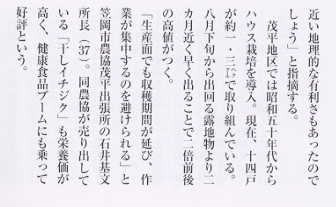 近い地理的な有利さもあったので
しょう」と指摘する。
茂平地区では昭和五十年代から
ハウス栽培を導入。現在、十四戸
が約一・三㌶で取り組んでいる。
八月下旬から出回る露地物より二
カ月近く早く出ることで二倍前後
の高値がつく。
「生産面でも収穫期間が延び、作
業が集中するのを避けられる」と
笠岡市農協茂平出張所の石井基文
所長（37）。同農協が売り出して
いる「干しイチジク」も栄養価が
高く、健康食品ブームにも乗って
好評という。